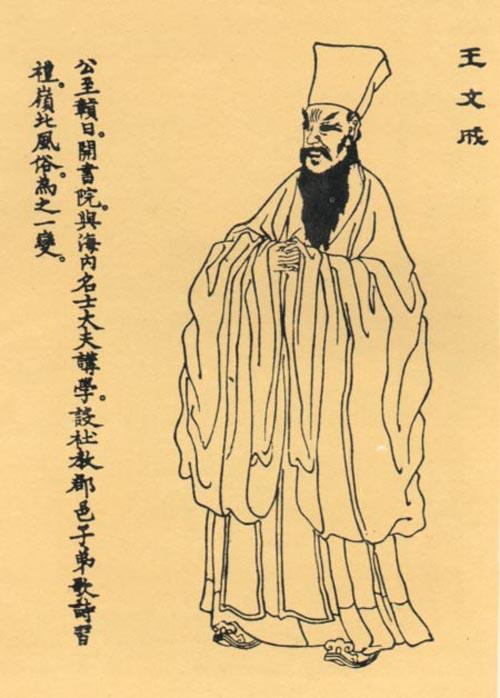 王文成
公至贛日。開書院。與海内名士大夫講學。設社教郡邑子弟歌詩習
禮。嶺北風俗。爲之一變。